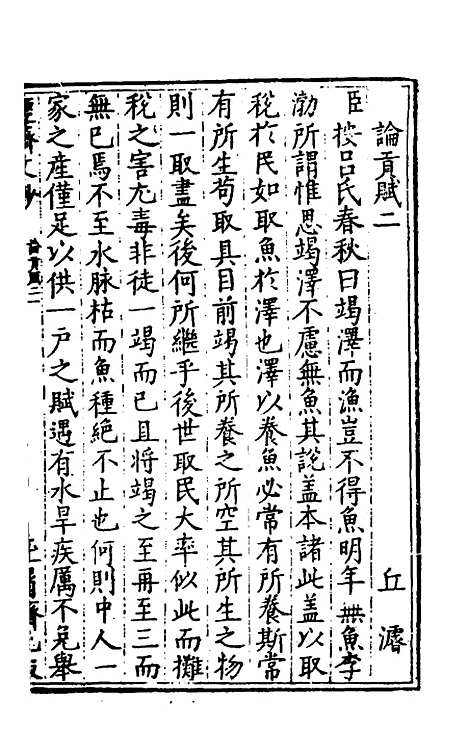 論貢賦二
丘濬
臣按呂氏春秋曰竭澤而漁豈不得魚明年無魚李
渤所謂惟思竭澤不慮無魚其說盖本諸此盖以取
稅於民如取魚於澤也澤以養魚必常有所養斯常
有所生苟取具目前竭其所養之所空其所生之物
則一取盡矣後何所繼乎後世取民大率似此而攤
稅之害尤毒非徒一竭而已且將竭之至再至三而
無已焉不至水脉枯而魚種絕不止也何則中人一
家之產僅足以供一戶之賦遇有水旱疾厲不免舉
論貢賦二